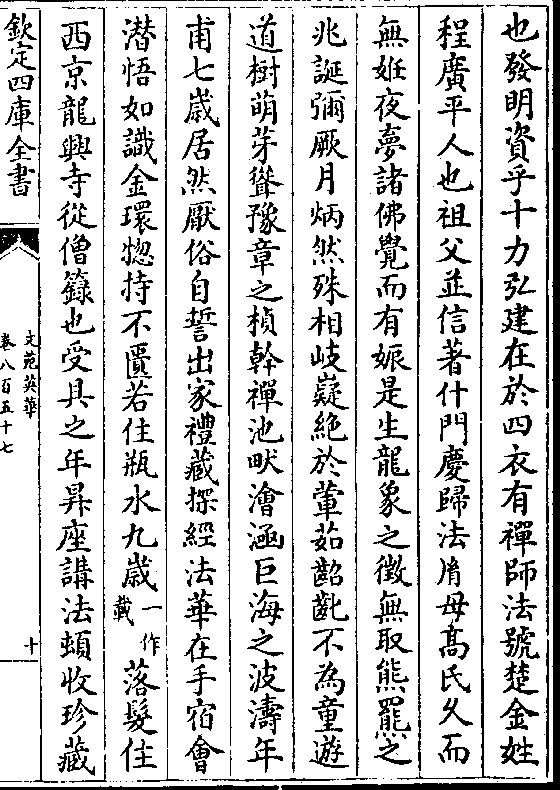 也發明資乎十力弘建在於四衣有禪師法號楚金姓
程廣平人也祖父並信著什門慶歸法胤母髙氏乆而
無姙夜夢諸佛覺而有娠是生龍象之徵無取熊羆之
兆誕彌厥月炳然殊相岐嶷絶於葷茹齠齓不為童遊
道樹萌芽聳豫章之楨幹禪池畎澮涵巨海之波濤年
甫七嵗居然厭俗自誓出家禮藏探經法華在手宿㑹
潜悟如識金環惣持不匱若住瓶水九嵗一作載落髮住
西京龍興寺從僧籙也受具之年昇座講法頓收珍藏
欽定四庫全書
文苑英華
卷八百五十七
十